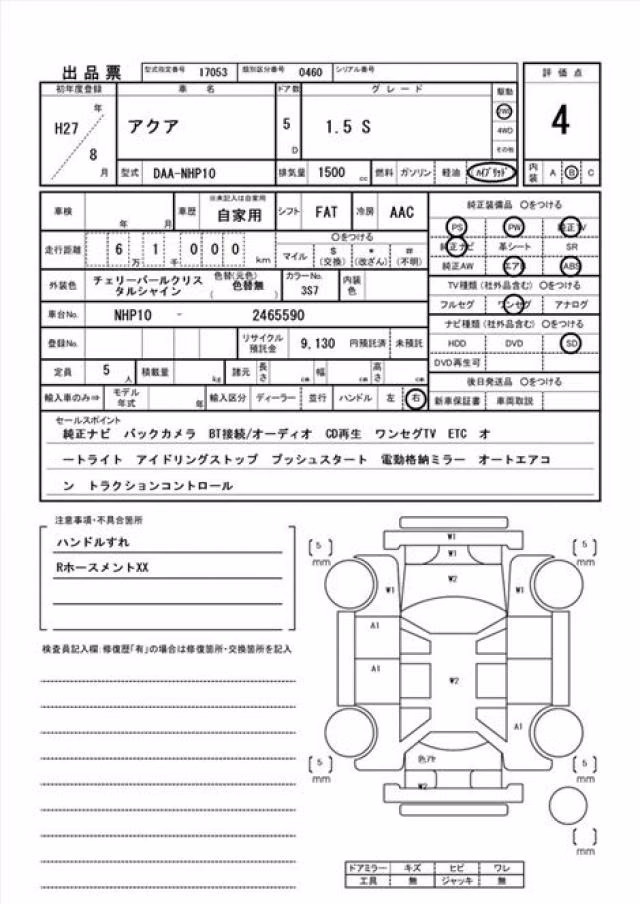 出品票 型式指定番号 17053 類別区分番号 0460 シリアル番号
初年度登録 車名 ドア数 グレード 駆動 評価点
H27 年 8 月 アクア 5 D 1.5 S 2WD 4WD その他 4
型式 DAA-NHP10 排気量 1500 cc 燃料 ガソリン 軽油 ハイブリッド 内装 A B C
車検 年 月 車歴 ※未記入は自家用 自家用 シフト FAT 冷房 AAC
純正装備品 〇をつける
PS PW 純正TV
純正ナビ 革シート SR
純正AW エアB ABS
走行距離 6 万 1 千 0 0 0 km 〇をつける
マイル $(交換) *(改ざん) #(不明)
TV種類(社外品含む) 〇をつける
フルセグ ワンセグ アナログ
外装色 チェリーパールクリスタルシャイン 色替(元色) ( 色替無 ) カラーNo. 3S7 内装色
車台No. NHP10 - 2465590
ナビ種類(社外品含む) 〇をつける
HDD DVD SD
DVD再生可
登録No. リサイクル預託金 9,130 円預託済 未預託
定員 5 人 積載量 kg 諸元 長さ cm 幅 cm 高さ cm
後日発送品 〇をつける
新車保証書 車両取説
輸入車のみ⇒ モデル年式 年 輸入区分 ディーラー 並行 ハンドル 左 右
セールスポイント
純正ナビ バックカメラ BT接続/オーディオ CD再生 ワンセグTV ETC オ
ートライト アイドリングストップ プッシュスタート 電動格納ミラー オートエアコ
ン トラクションコントロール
注意事項・不具合箇所
ハンドルすれ
RホースメントXX
検査員記入欄:修復歴「有」の場合は修復箇所・交換箇所を記入
W1
W1
[ 5 ] mm W2 [ 5 ] mm
W1 W1
A1
A1 W2
A1
[ 5 ] mm 色アヤ [ 5 ] mm
W2
[ ] mm
ドアミラー キズ ヒビ ワレ
工具 無 ジャッキ 無